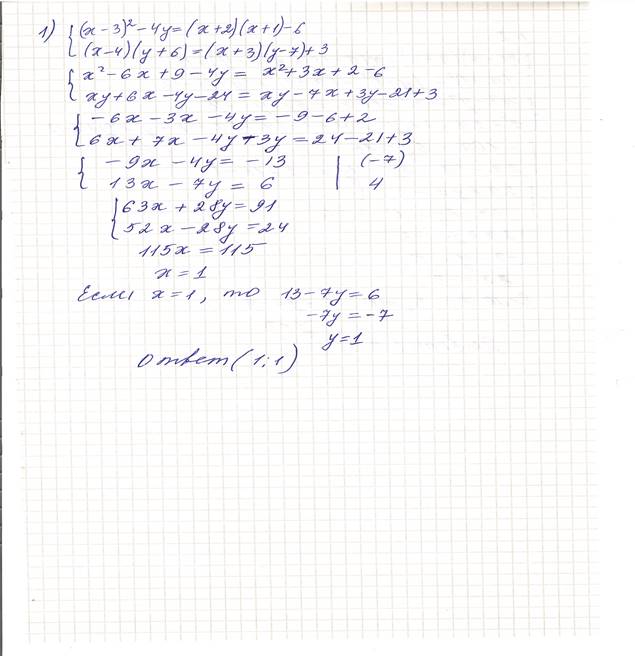 1) { (x-3)² - 4y = (x+2)(x+1) - 6
(x-4)(y+6) = (x+3)(y-7) + 3
{ x² - 6x + 9 - 4y = x² + 3x + 2 - 6
xy + 6x - 4y - 24 = xy - 7x + 3y - 21 + 3
{ -6x - 3x - 4y = -9 - 6 + 2
6x + 7x - 4y - 3y = 24 - 21 + 3
{ -9x - 4y = -13 | (-7)
13x - 7y = 6 | 4
{ 63x + 28y = 91
52x - 28y = 24
115x = 115
x = 1
Если x = 1, то 13 - 7y = 6
-7y = -7
y = 1
Ответ (1; 1)